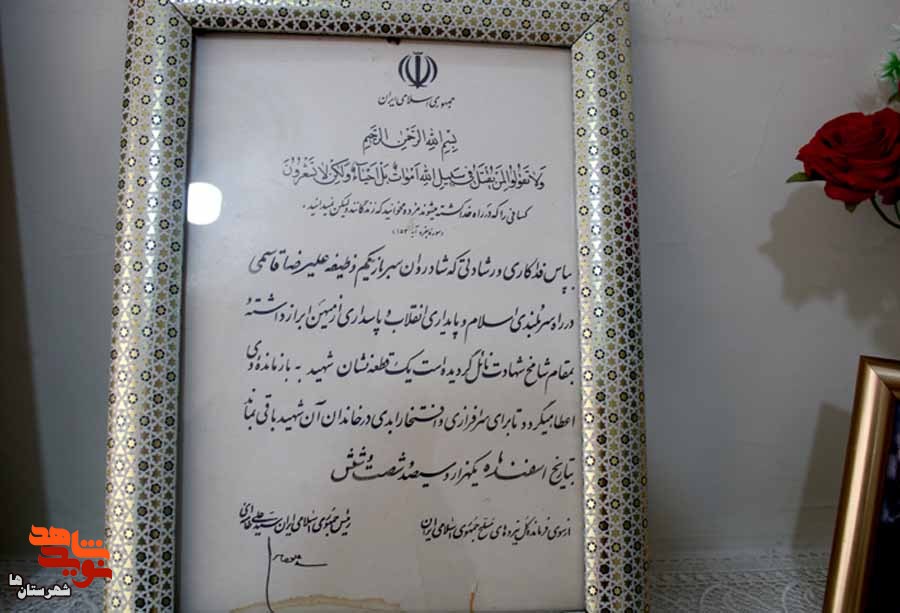 جمهوری اسلامی ایران
بسم الله الرحمن الرحیم
ولا تقولوا لمن یقتل فی سبیل الله اموات بل احیاء ولکن لا تشعرون
کسانی را که در راه خدا کشته میشوند مرده مخوانید که زندگانند ولیکن نمیدانید.
(سوره بقره آیه ۱۵۴)
بپاس فداکاری و رشادتی که شادروان سرباز یکم وظیفه علیرضا قاسمی
در راه سربلندی اسلام و پایداری انقلاب و پاسداری از میهن ابراز داشته و
بمقام شامخ شهادت نائل گردیده است یک قطعه نشان شهید به بازمانده وی
اعطا میگردد تا برای سرافرازی و افتخار ابدی در خاندان آن شهید باقی بماند
بتاریخ اسفند ماه یکهزار و سیصد و شصت و شش
از سوی فرمانده کل نیروهای مسلح جمهوری اسلامی ایران
رئیس جمهوری اسلامی ایران سید علی خامنه‌ای
نوید شاهد
شهرستان ها